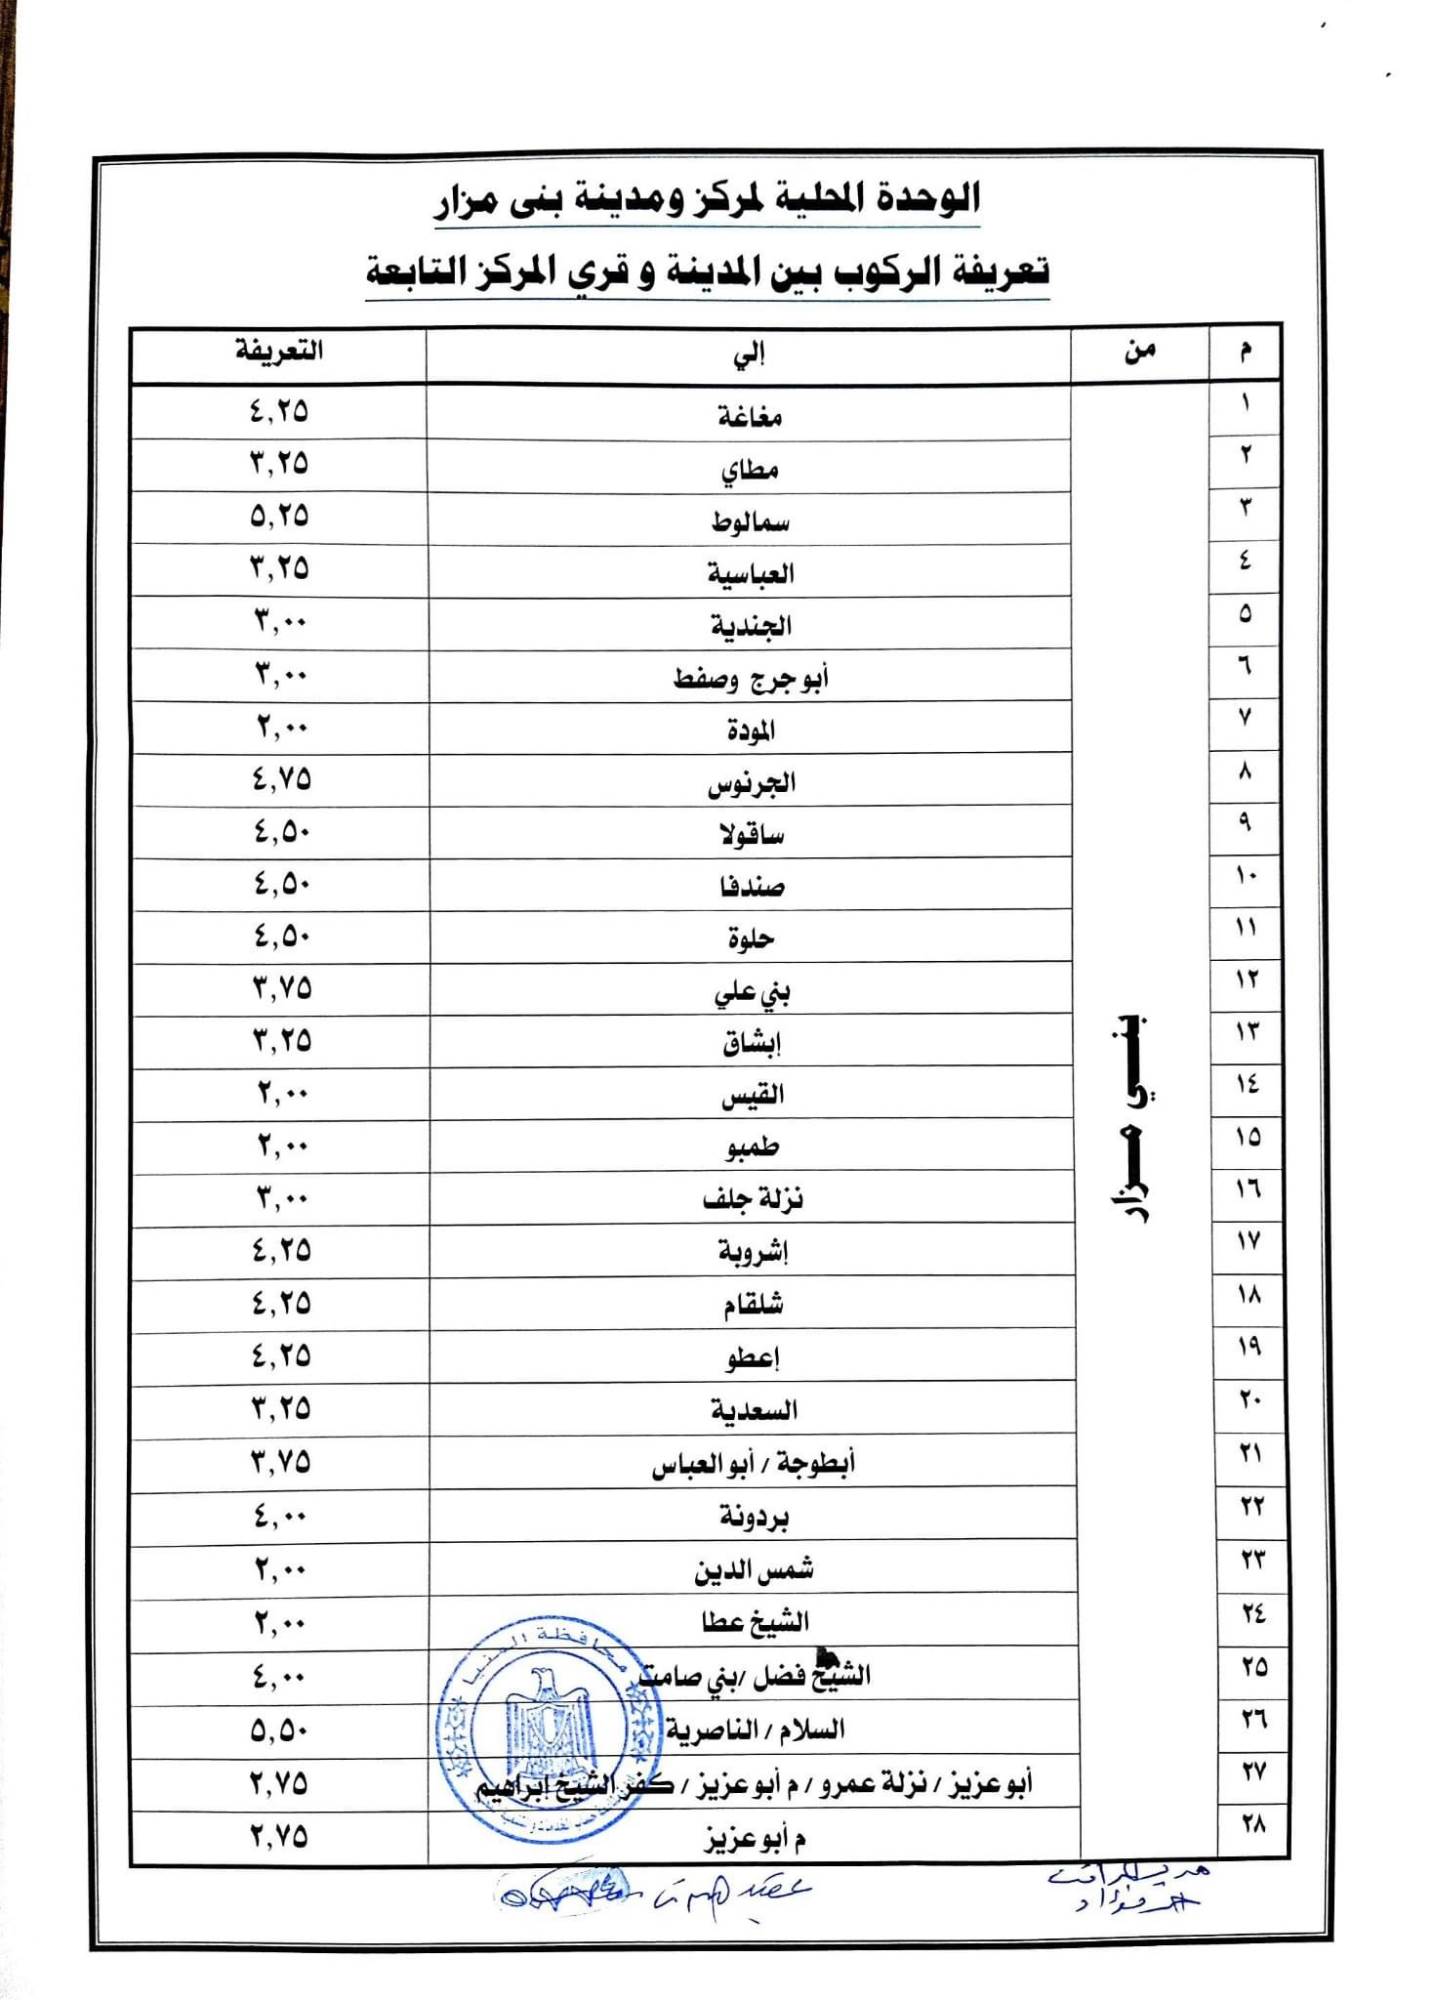 الوحدة المحلية لمركز ومدينة بنى مزار
تعريفة الركوب بين المدينة و قري المركز التابعة
م من إلي التعريفة
بنــي مــزار
١ مغاغة ٤,٢٥
٢ مطاي ٣,٢٥
٣ سمالوط ٥,٢٥
٤ العباسية ٣,٢٥
٥ الجندية ٣,٠٠
٦ أبو جرج وصفط ٣,٠٠
٧ المودة ٢,٠٠
٨ الجرنوس ٤,٧٥
٩ ساقولا ٤,٥٠
١٠ صندفا ٤,٥٠
١١ حلوة ٤,٥٠
١٢ بني علي ٣,٧٥
١٣ إبشاق ٣,٢٥
١٤ القيس ٢,٠٠
١٥ طمبو ٢,٠٠
١٦ نزلة جلف ٣,٠٠
١٧ إشروبة ٤,٢٥
١٨ شلقام ٤,٢٥
١٩ إعطو ٤,٢٥
٢٠ السعدية ٣,٢٥
٢١ أبطوجة / أبو العباس ٣,٧٥
٢٢ بردونة ٤,٠٠
٢٣ شمس الدين ٢,٠٠
٢٤ الشيخ عطا ٢,٠٠
٢٥ الشيخ فضل /بني صامت ٤,٠٠
٢٦ السلام / الناصرية ٥,٥٠
٢٧ أبو عزيز / نزلة عمرو / م أبو عزيز / كفر الشيخ إبراهيم ٢,٧٥
٢٨ م أبو عزيز ٢,٧٥
محافظة المنيا